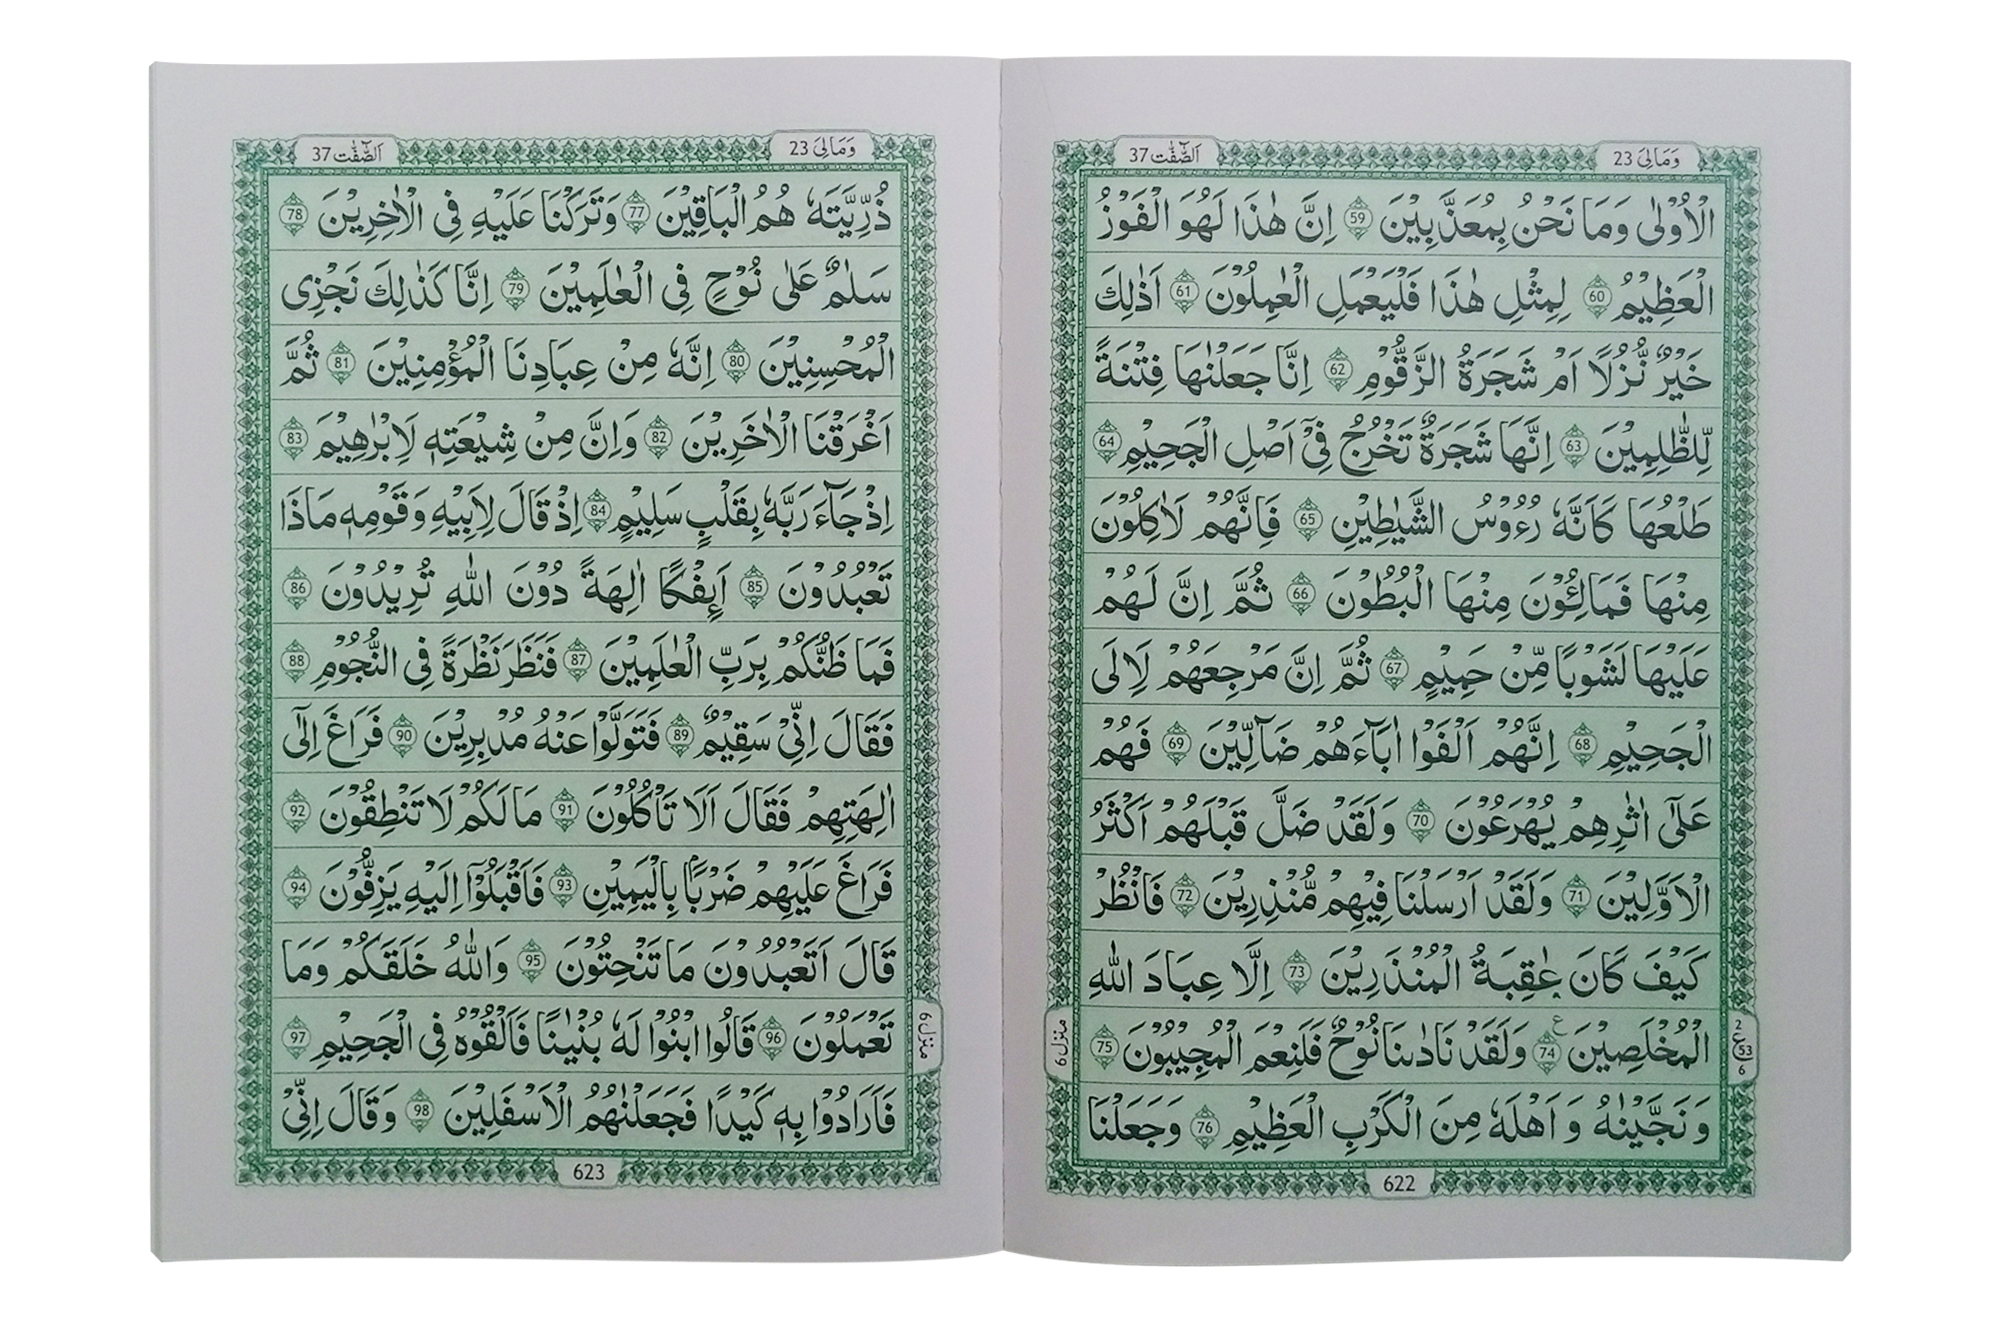 وَمَالِیَ 23
اَلصّٰٓفّٰت 37
الْاُوْلٰى وَمَا نَحْنُ بِمُعَذَّبِيْنَ 59 اِنَّ هٰذَا لَهُوَ الْفَوْزُ
الْعَظِيْمُ 60 لِمِثْلِ هٰذَا فَلْيَعْمَلِ الْعٰمِلُوْنَ 61 اَذٰلِكَ
خَيْرٌ نُّزُلًا اَمْ شَجَرَةُ الزَّقُّوْمِ 62 اِنَّا جَعَلْنٰهَا فِتْنَةً
لِّلظّٰلِمِيْنَ 63 اِنَّهَا شَجَرَةٌ تَخْرُجُ فِيْٓ اَصْلِ الْجَحِيْمِ 64
طَلْعُهَا كَاَنَّهٗ رُءُوْسُ الشَّيٰطِيْنِ 65 فَاِنَّهُمْ لَاٰكِلُوْنَ
مِنْهَا فَمَالِـُٔوْنَ مِنْهَا الْبُطُوْنَ 66 ثُمَّ اِنَّ لَهُمْ
عَلَيْهَا لَشَوْبًا مِّنْ حَمِيْمٍ 67 ثُمَّ اِنَّ مَرْجِعَهُمْ لَاِلَى
الْجَحِيْمِ 68 اِنَّهُمْ اَلْفَوْا اٰبَآءَهُمْ ضَآلِّيْنَ 69 فَهُمْ
عَلٰٓى اٰثٰرِهِمْ يُهْرَعُوْنَ 70 وَلَقَدْ ضَلَّ قَبْلَهُمْ اَكْثَرُ
الْاَوَّلِيْنَ 71 وَلَقَدْ اَرْسَلْنَا فِيْهِمْ مُّنْذِرِيْنَ 72 فَانْظُرْ
كَيْفَ كَانَ عٰقِبَةُ الْمُنْذَرِيْنَ 73 اِلَّا عِبَادَ اللّٰهِ
الْمُخْلَصِيْنَ 74 ع وَلَقَدْ نَادٰىنَا نُوْحٌ فَلَنِعْمَ الْمُجِيْبُوْنَ 75
وَنَجَّيْنٰهُ وَاَهْلَهٗ مِنَ الْكَرْبِ الْعَظِيْمِ 76 وَجَعَلْنَا
2
ع 53
6
منزل 6
622
وَمَالِیَ 23
اَلصّٰٓفّٰت 37
ذُرِّيَّتَهٗ هُمُ الْبَاقِيْنَ 77 وَتَرَكْنَا عَلَيْهِ فِى الْاٰخِرِيْنَ 78
سَلٰمٌ عَلٰى نُوْحٍ فِى الْعٰلَمِيْنَ 79 اِنَّا كَذٰلِكَ نَجْزِى
الْمُحْسِنِيْنَ 80 اِنَّهٗ مِنْ عِبَادِنَا الْمُؤْمِنِيْنَ 81 ثُمَّ
اَغْرَقْنَا الْاٰخَرِيْنَ 82 وَاِنَّ مِنْ شِيْعَتِهٖ لَاِبْرٰهِيْمَ 83
اِذْ جَآءَ رَبَّهٗ بِقَلْبٍ سَلِيْمٍ 84 اِذْ قَالَ لِاَبِيْهِ وَقَوْمِهٖ مَاذَا
تَعْبُدُوْنَ 85 اَئِفْكًا اٰلِهَةً دُوْنَ اللّٰهِ تُرِيْدُوْنَ 86
فَمَا ظَنُّكُمْ بِرَبِّ الْعٰلَمِيْنَ 87 فَنَظَرَ نَظْرَةً فِى النُّجُوْمِ 88
فَقَالَ اِنِّيْ سَقِيْمٌ 89 فَتَوَلَّوْا عَنْهُ مُدْبِرِيْنَ 90 فَرَاغَ اِلٰٓى
اٰلِهَتِهِمْ فَقَالَ اَلَا تَاْكُلُوْنَ 91 مَا لَكُمْ لَا تَنْطِقُوْنَ 92
فَرَاغَ عَلَيْهِمْ ضَرْبًاۢ بِالْيَمِيْنِ 93 فَاَقْبَلُوْٓا اِلَيْهِ يَزِفُّوْنَ 94
قَالَ اَتَعْبُدُوْنَ مَا تَنْحِتُوْنَ 95 وَاللّٰهُ خَلَقَكُمْ وَمَا
تَعْمَلُوْنَ 96 قَالُوا ابْنُوْا لَهٗ بُنْيٰنًا فَاَلْقُوْهُ فِى الْجَحِيْمِ 97
فَاَرَادُوْا بِهٖ كَيْدًا فَجَعَلْنٰهُمُ الْاَسْفَلِيْنَ 98 وَقَالَ اِنِّيْ
منزل 6
623